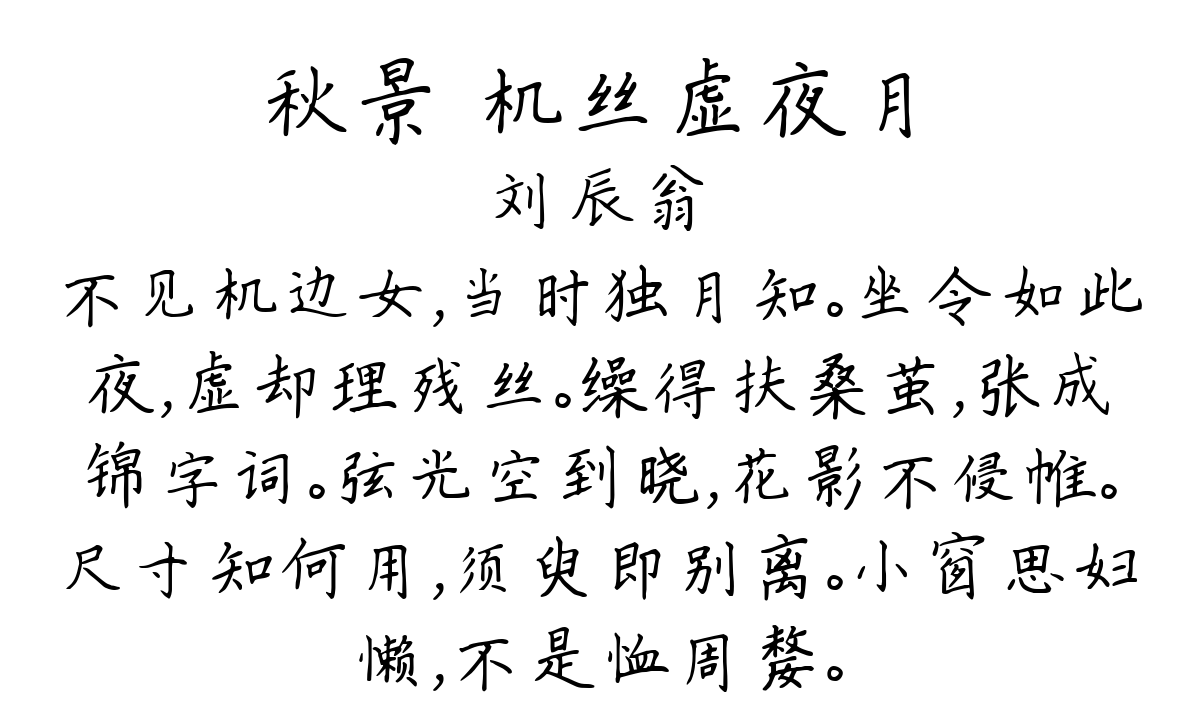 秋景 机丝虚夜月
刘辰翁
不见机边女,当时独月知。坐令如此
夜,虚却理残丝。缲得扶桑茧,张成
锦字词。弦光空到晓,花影不侵帷。
尺寸知何用,须臾即别离。小窗思妇
懒,不是恤周嫠。